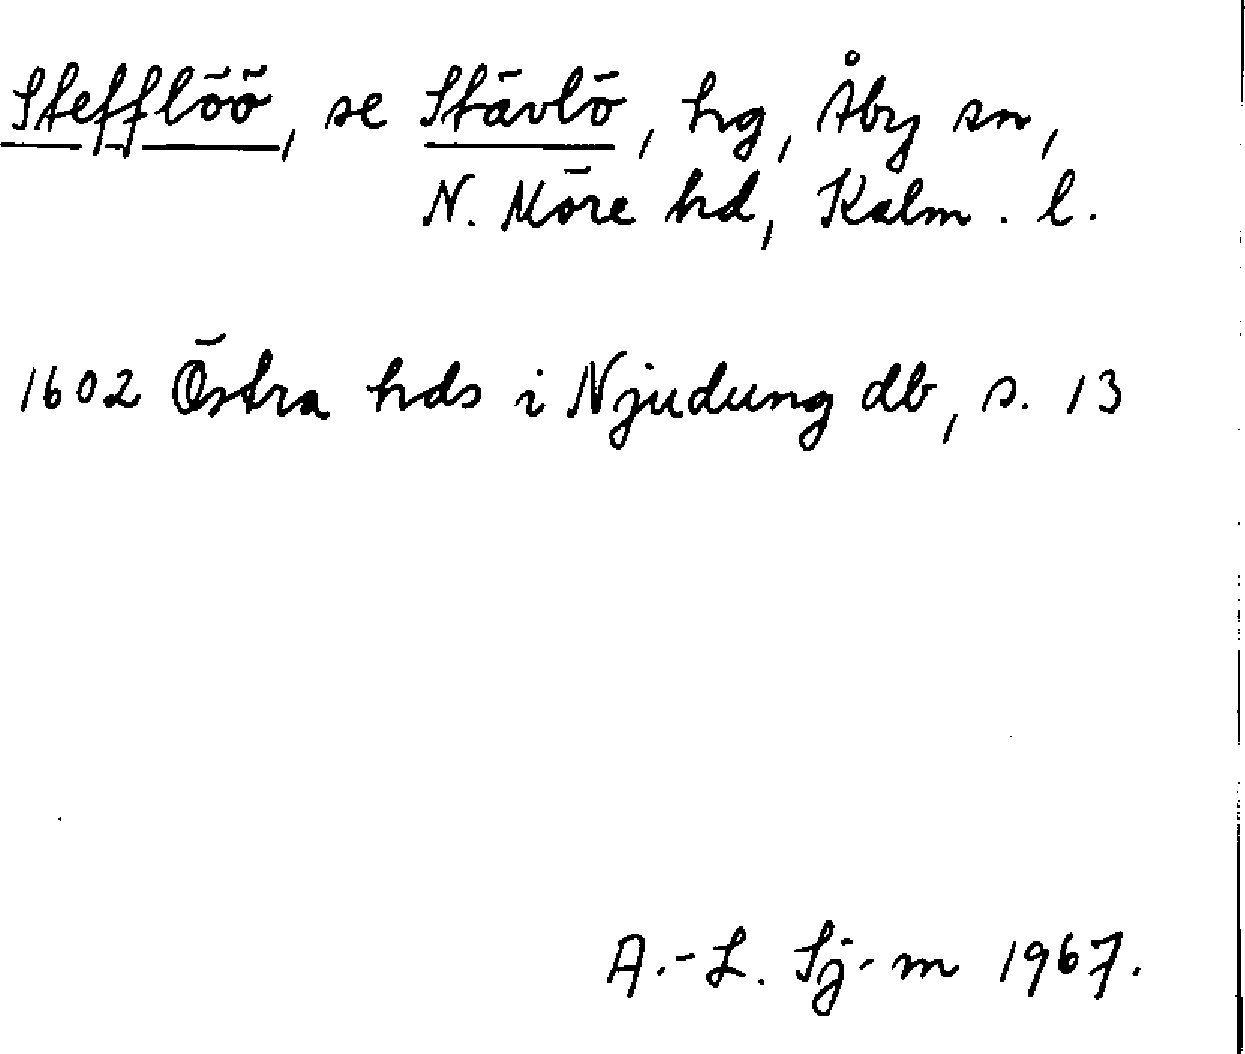 Stefflöö, se Stävlö, hg, Åby sn,
N. Möre hd, Kalm. l.
1602 Östra hds i Njudung db, s. 13
A.-L. Sj-m 1967.